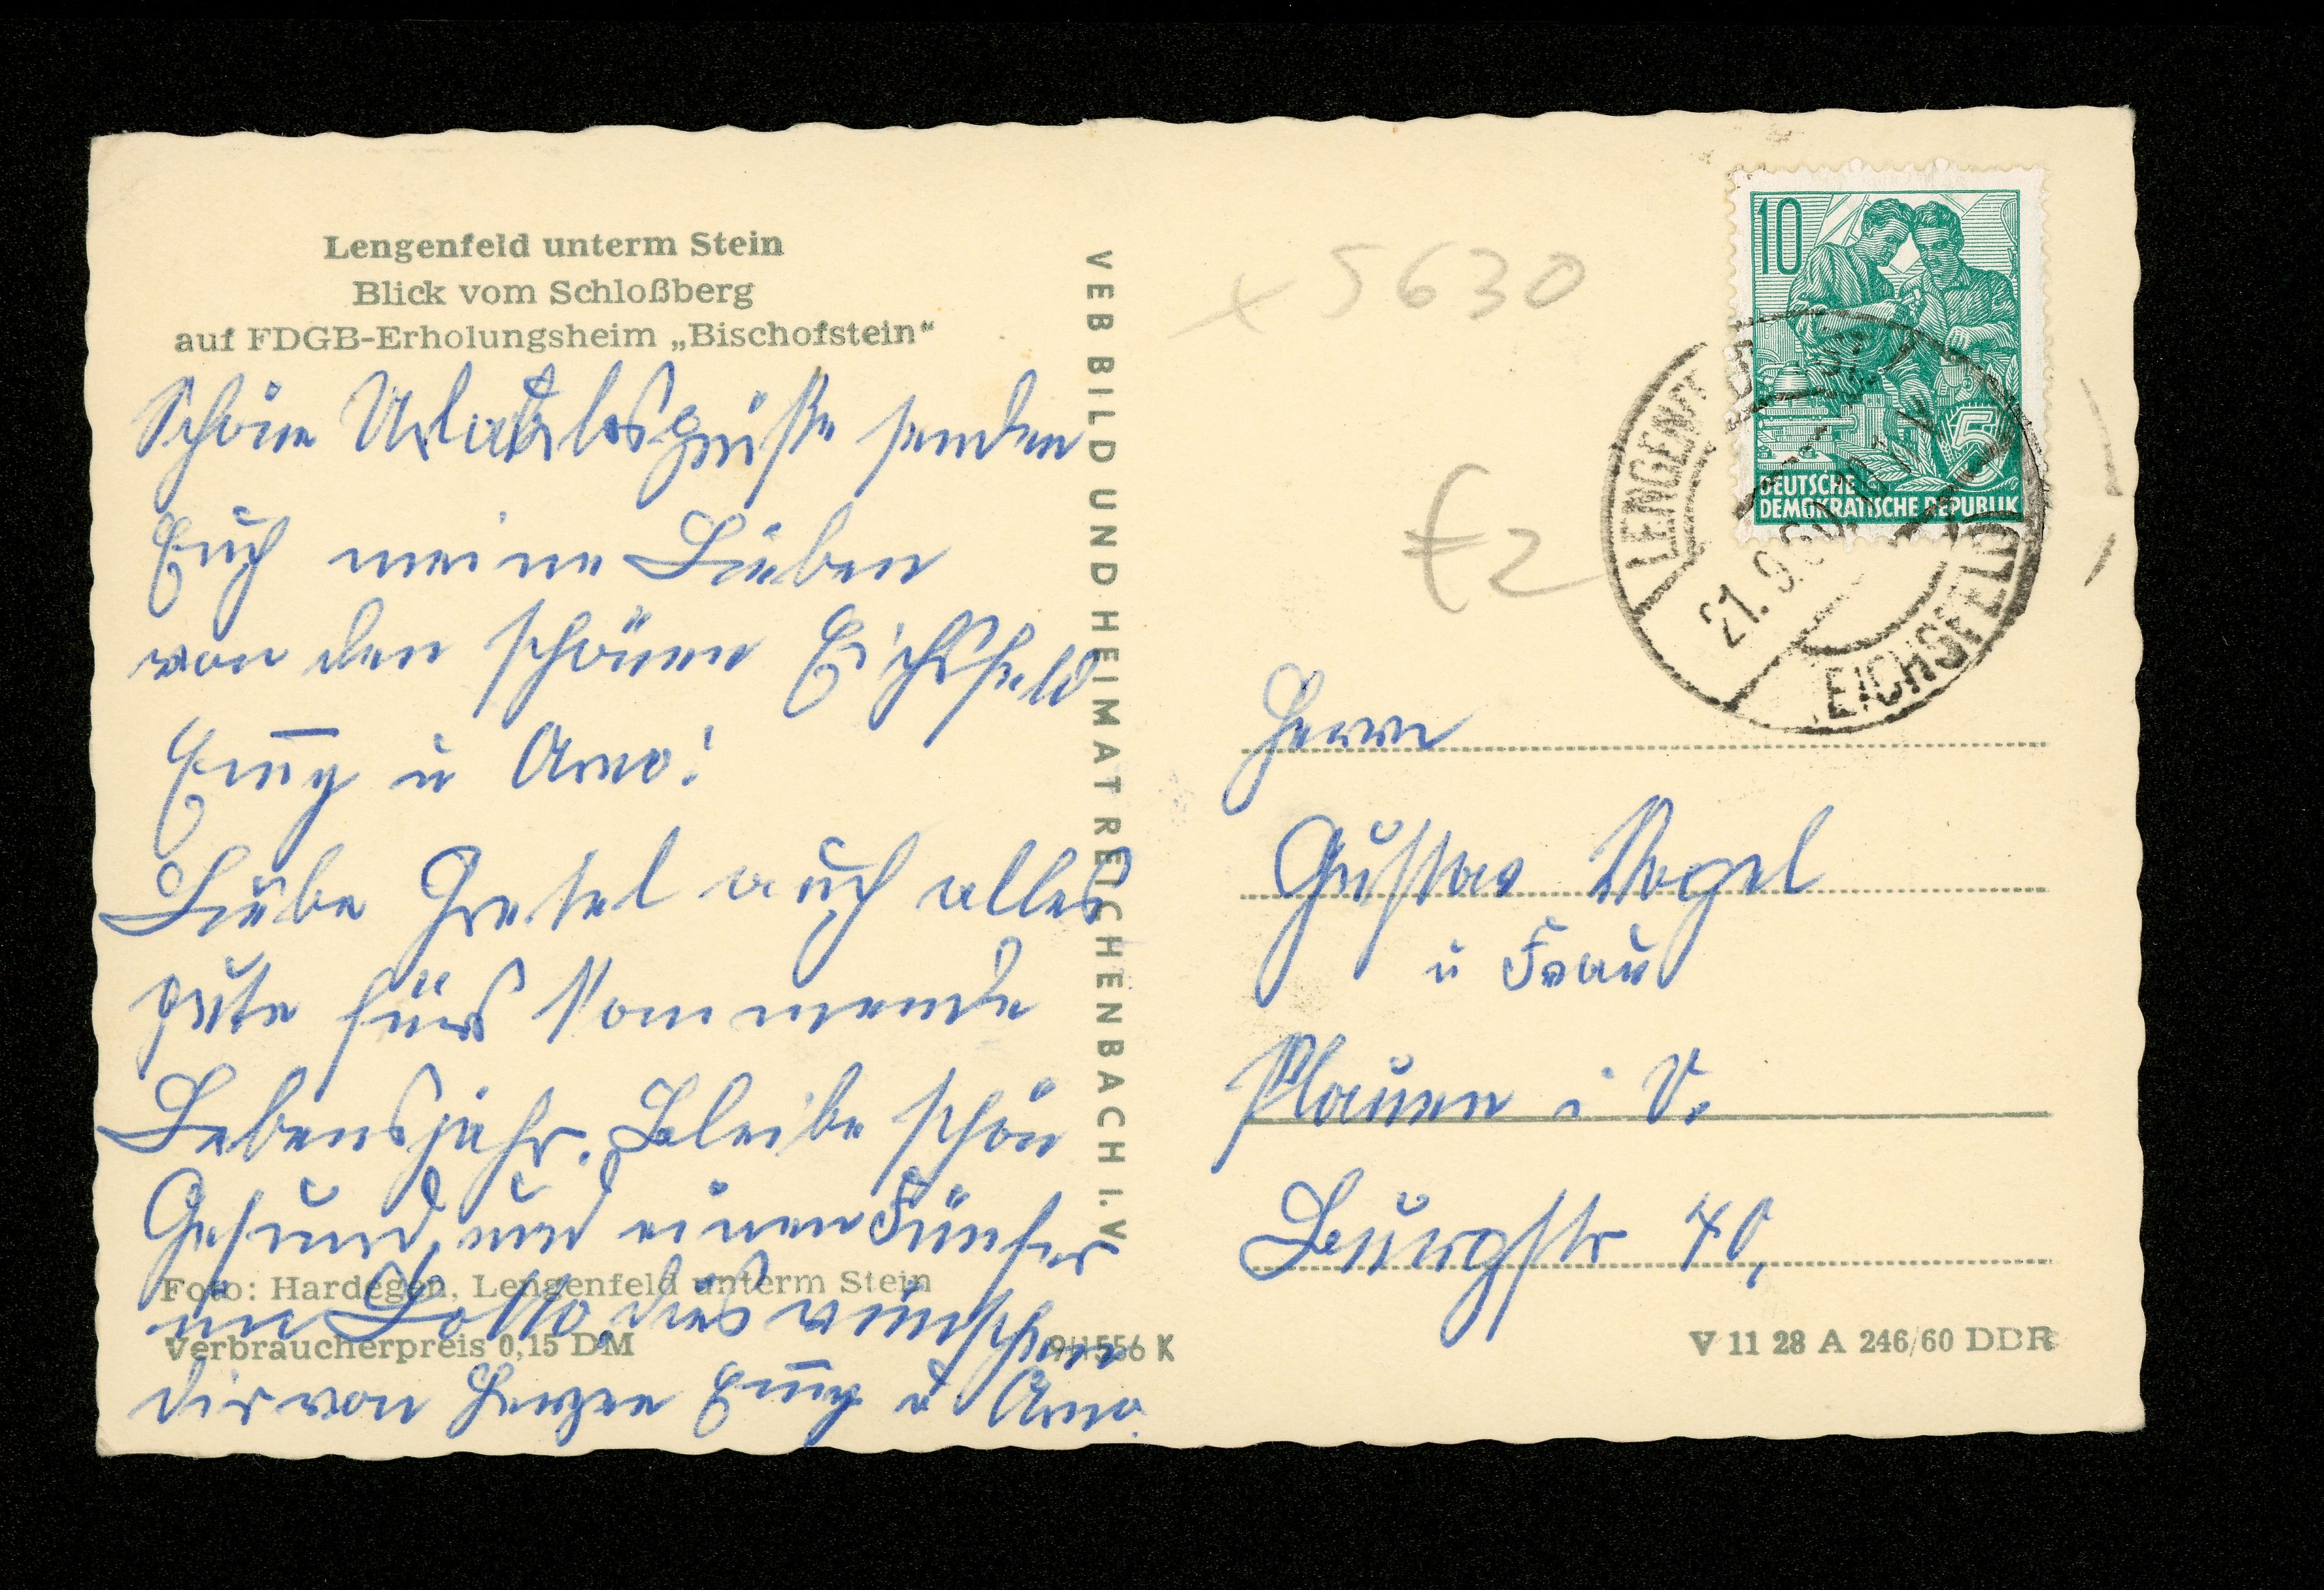 Lengenfeld unterm Stein
Blick vom Schloßberg
auf FDGB-Erholungsheim „Bischofstein“
Schöne Urlaubsgrüße senden
Euch meine Lieben
von den schönen Eichsfeld
Em̅y u Arno!
Liebe Gretel auch alles
gute fürs kommende
Lebensjahr. Bleibe schön
Gesund, und einen Fünfer
im Lotto, dies wünschen
dir von Herzen Em̅y u Arno.
Foto: Hardegen, Lengenfeld unterm Stein
Verbraucherpreis 0,15 DM
9/1556 K
VEB BILD UND HEIMAT REICHENBACH I. V
x 5630
€ 2
10
5
DEUTSCHE
DEMOKRATISCHE REPUBLIK
LENGENF
21.9.60
EICHSFELD
Herrn
Gustav Vogel
u Frau
Plauen i V.
Burgstr 40,
V 11 28 A 246/60 DDR